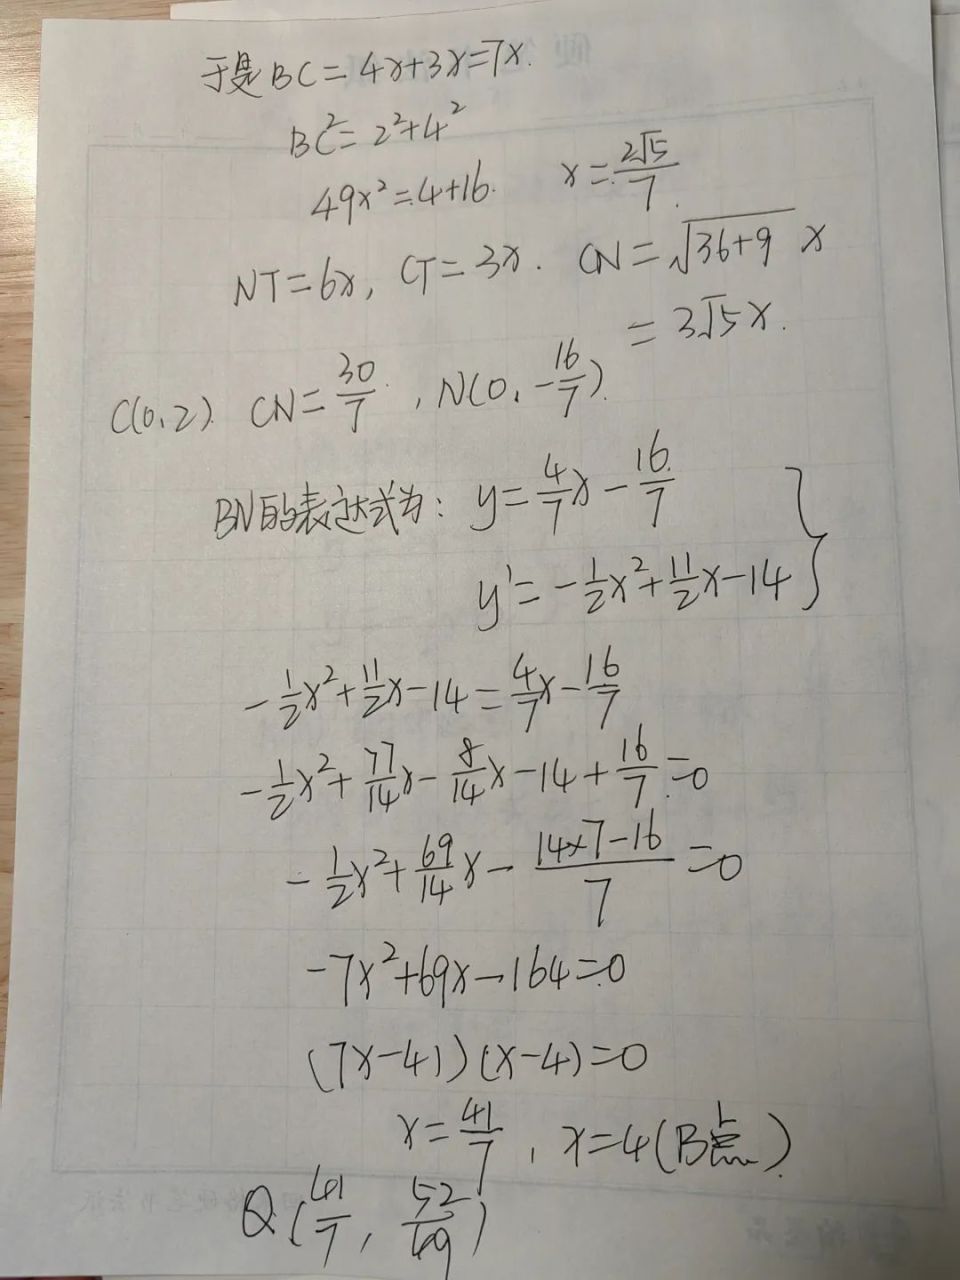 于是BC=4x+3x=7x.
BC²=2²+4²
49x²=4+16. x=2√5/7.
NT=6x, CT=3x. CN=√(36+9) x
=3√5x.
C(0,2). CN=30/7, N(0,-16/7).
BN的表达式为: y=4/7x-16/7
y'=-1/2x²+11/2x-14
-1/2x²+11/2x-14=4/7x-16/7
-1/2x²+77/14x-8/14x-14+16/7=0
-1/2x²+69/14x-(14×7-16)/7=0
-7x²+69x-164=0
(7x-41)(x-4)=0
x=41/7, x=4(B点)
Q(41/7, 52/49)